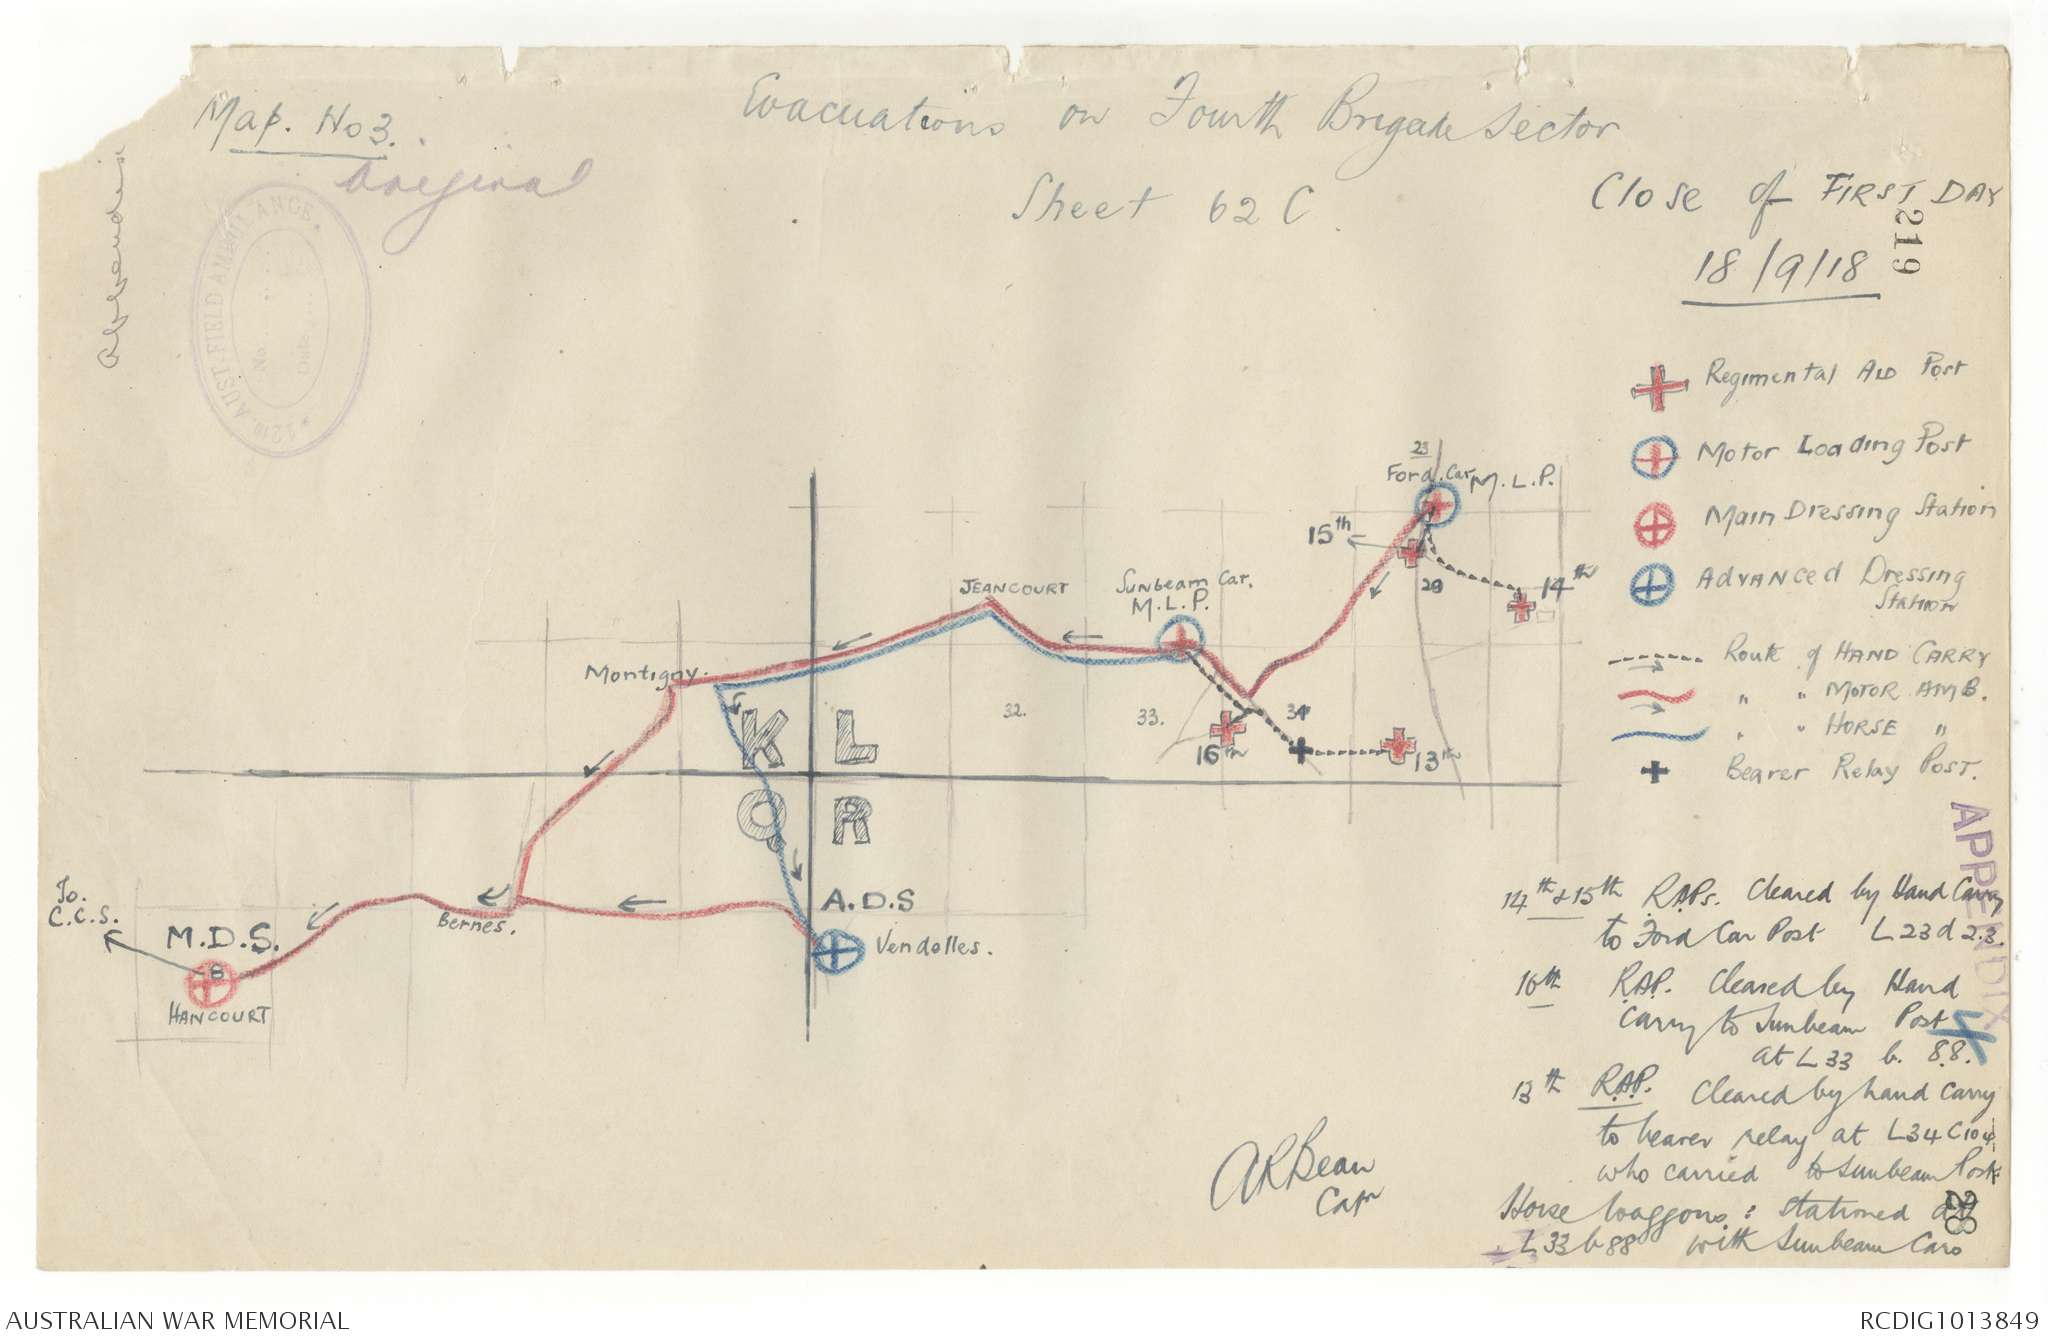 Map. No 3.
Original
Evacuations on Fourth Brigade Sector
Sheet 62 C
Close of FIRST DAY
18/9/18
219
Appendix
12TH AUST. FIELD AMBULANCE.
No.
Date
Regimental AID Post
Motor Loading Post
Main Dressing Station
ADVANCED Dressing
Station
Route of HAND CARRY
" " MOTOR AMB.
" " HORSE "
Bearer Relay POST.
23
Ford Car M.L.P.
15th
29
14th
JEANCOURT
Sunbeam Car.
M.L.P.
Montigny.
32.
33.
34
16th
13th
K L
Q R
A.D.S
Vendelles.
Bernes.
To.
C.C.S.
M.D.S.
HANCOURT
APPENDIX
4
14th & 15th R.A.Ps. Cleared by Hand Carry
to Ford Car Post L 23 d 2.3.
16th R.A.P. Cleared by Hand
Carry to Sunbeam Post
at L 33 b. 8.8.
13th R.A.P. Cleared by hand carry
to bearer relay at L34 C 10 4
who carried to Sunbeam Post
Horse Waggons: stationed at
L 33 b 88 with Sunbeam Cars
28
ARBean
Capt
AUSTRALIAN WAR MEMORIAL
RCDIG1013849